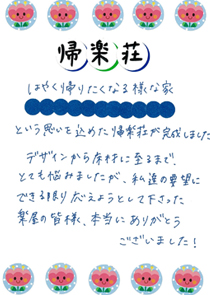 帰楽荘
はやく帰りたくなる様な家
という思いを込めた帰楽荘が完成しました
デザインから床材に至るまで、
とても悩みましたが、私達の要望に
できる限り応えようとして下さった
楽屋の皆様、本当にありがとう
ございました!